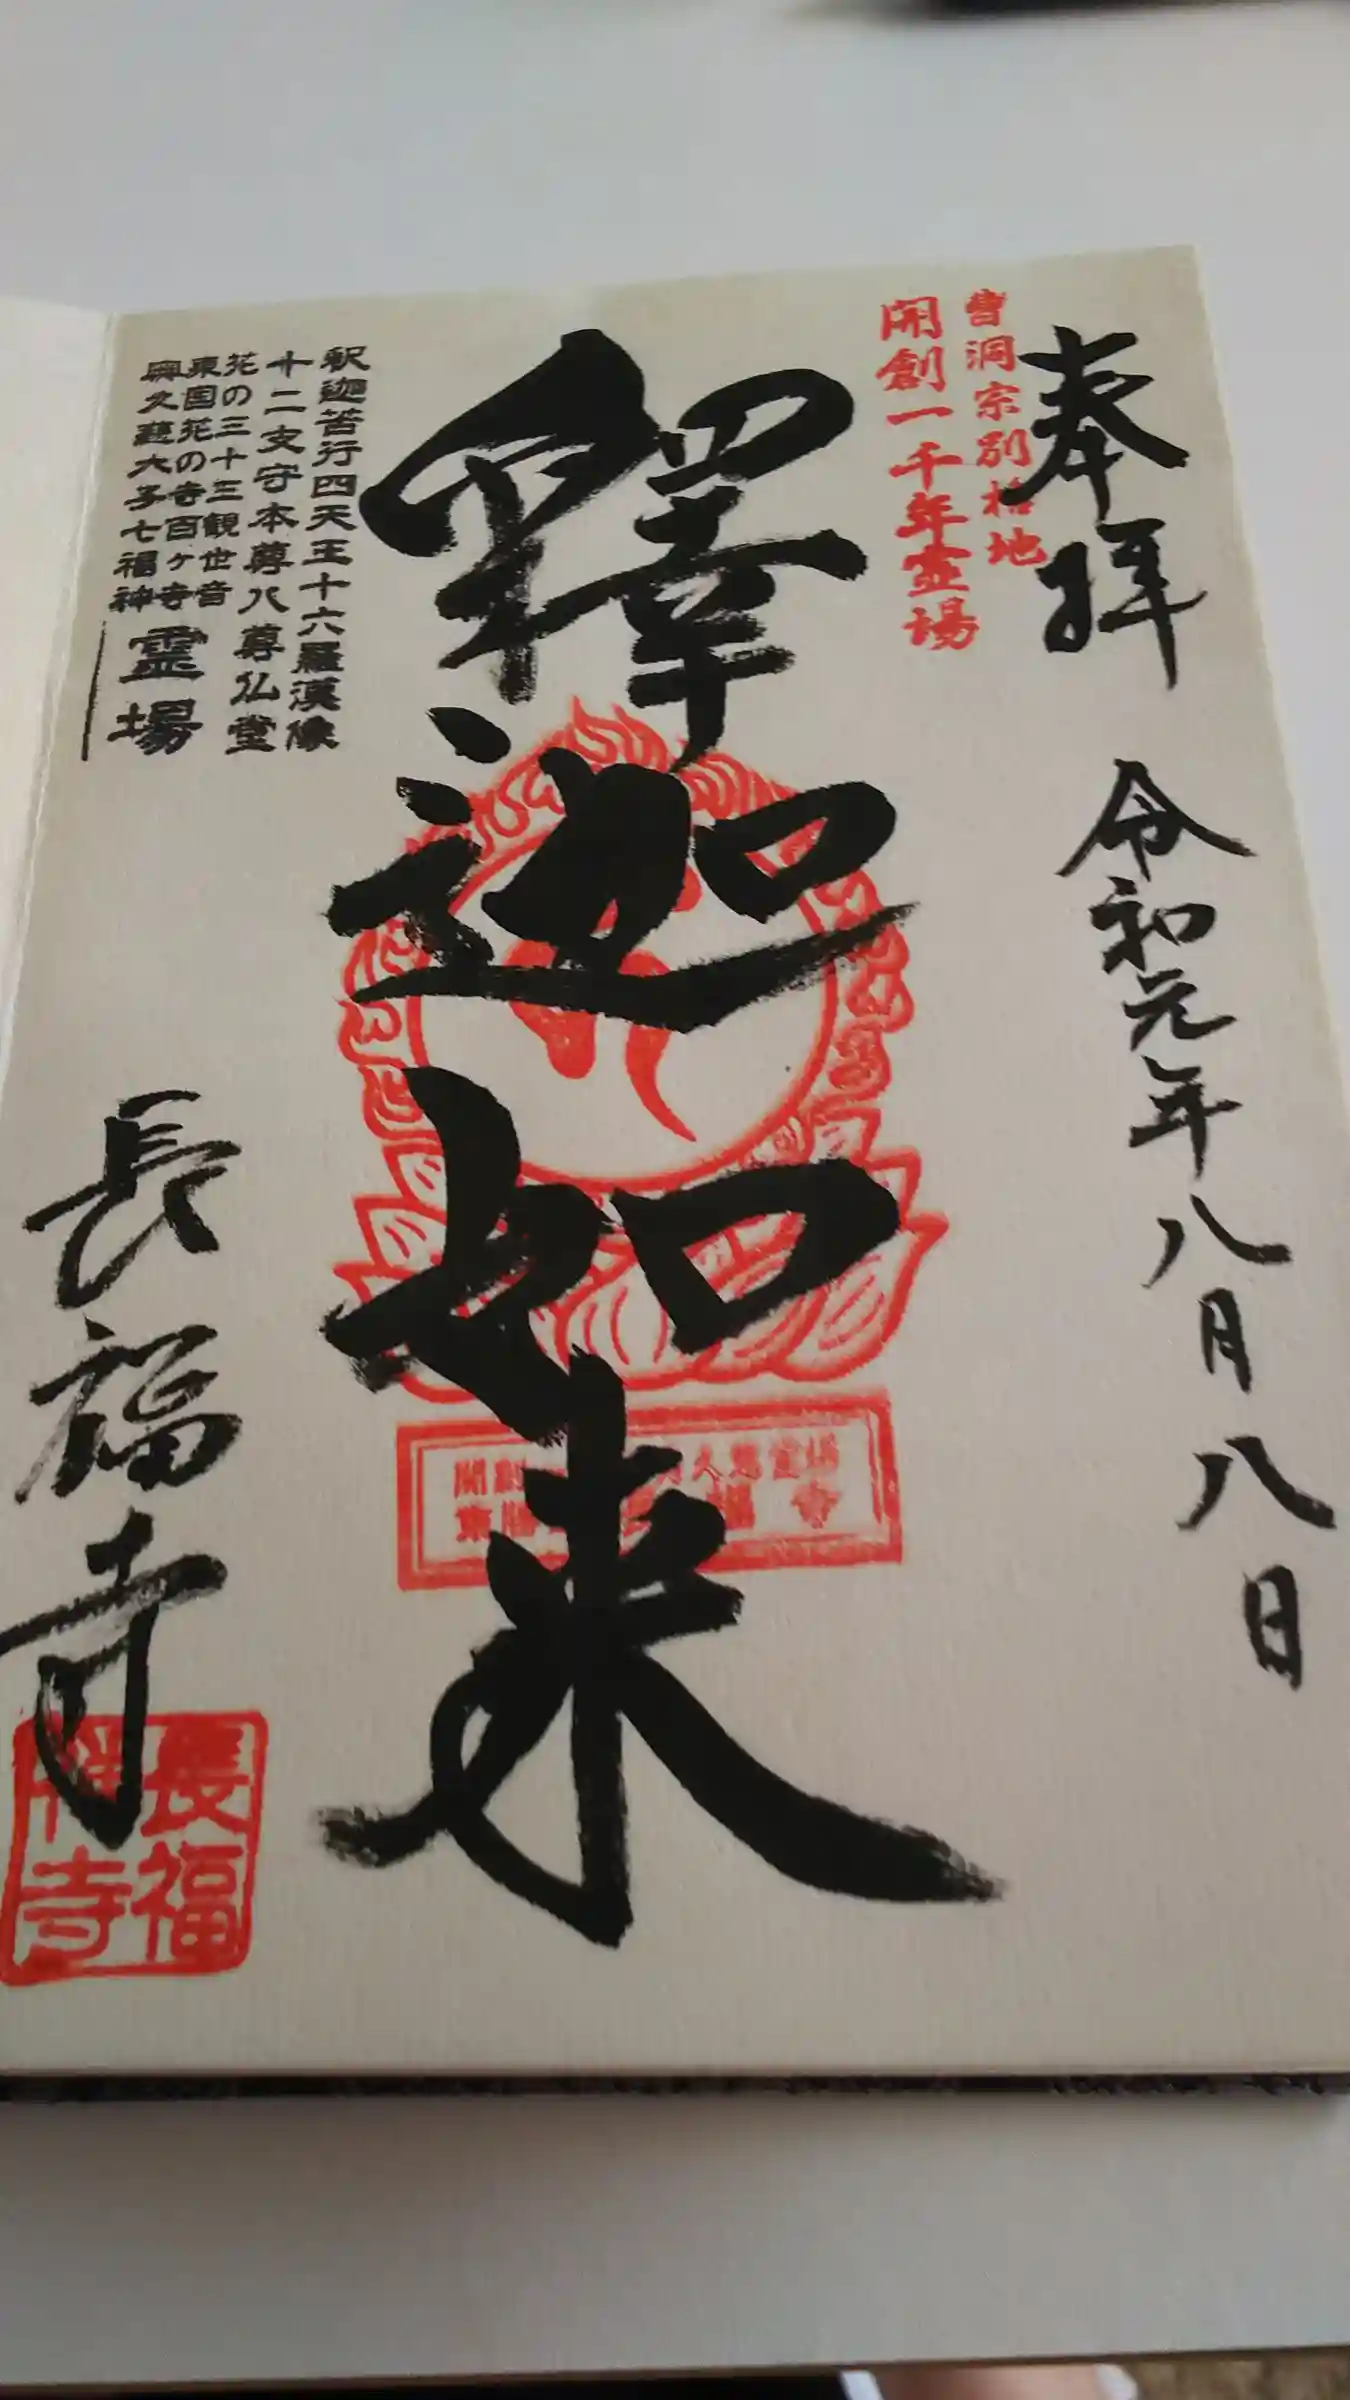 奉拝
令和元年八月八日
曹洞宗別格地
開創一千年霊場
釋迦如来
釈迦苦行四天王十六羅漢像
十二支守本尊八尊仏堂
花の三十三観世音
東国花の寺百ヶ寺
奥久慈大子七福神
霊場
長福寺
長福
禅寺